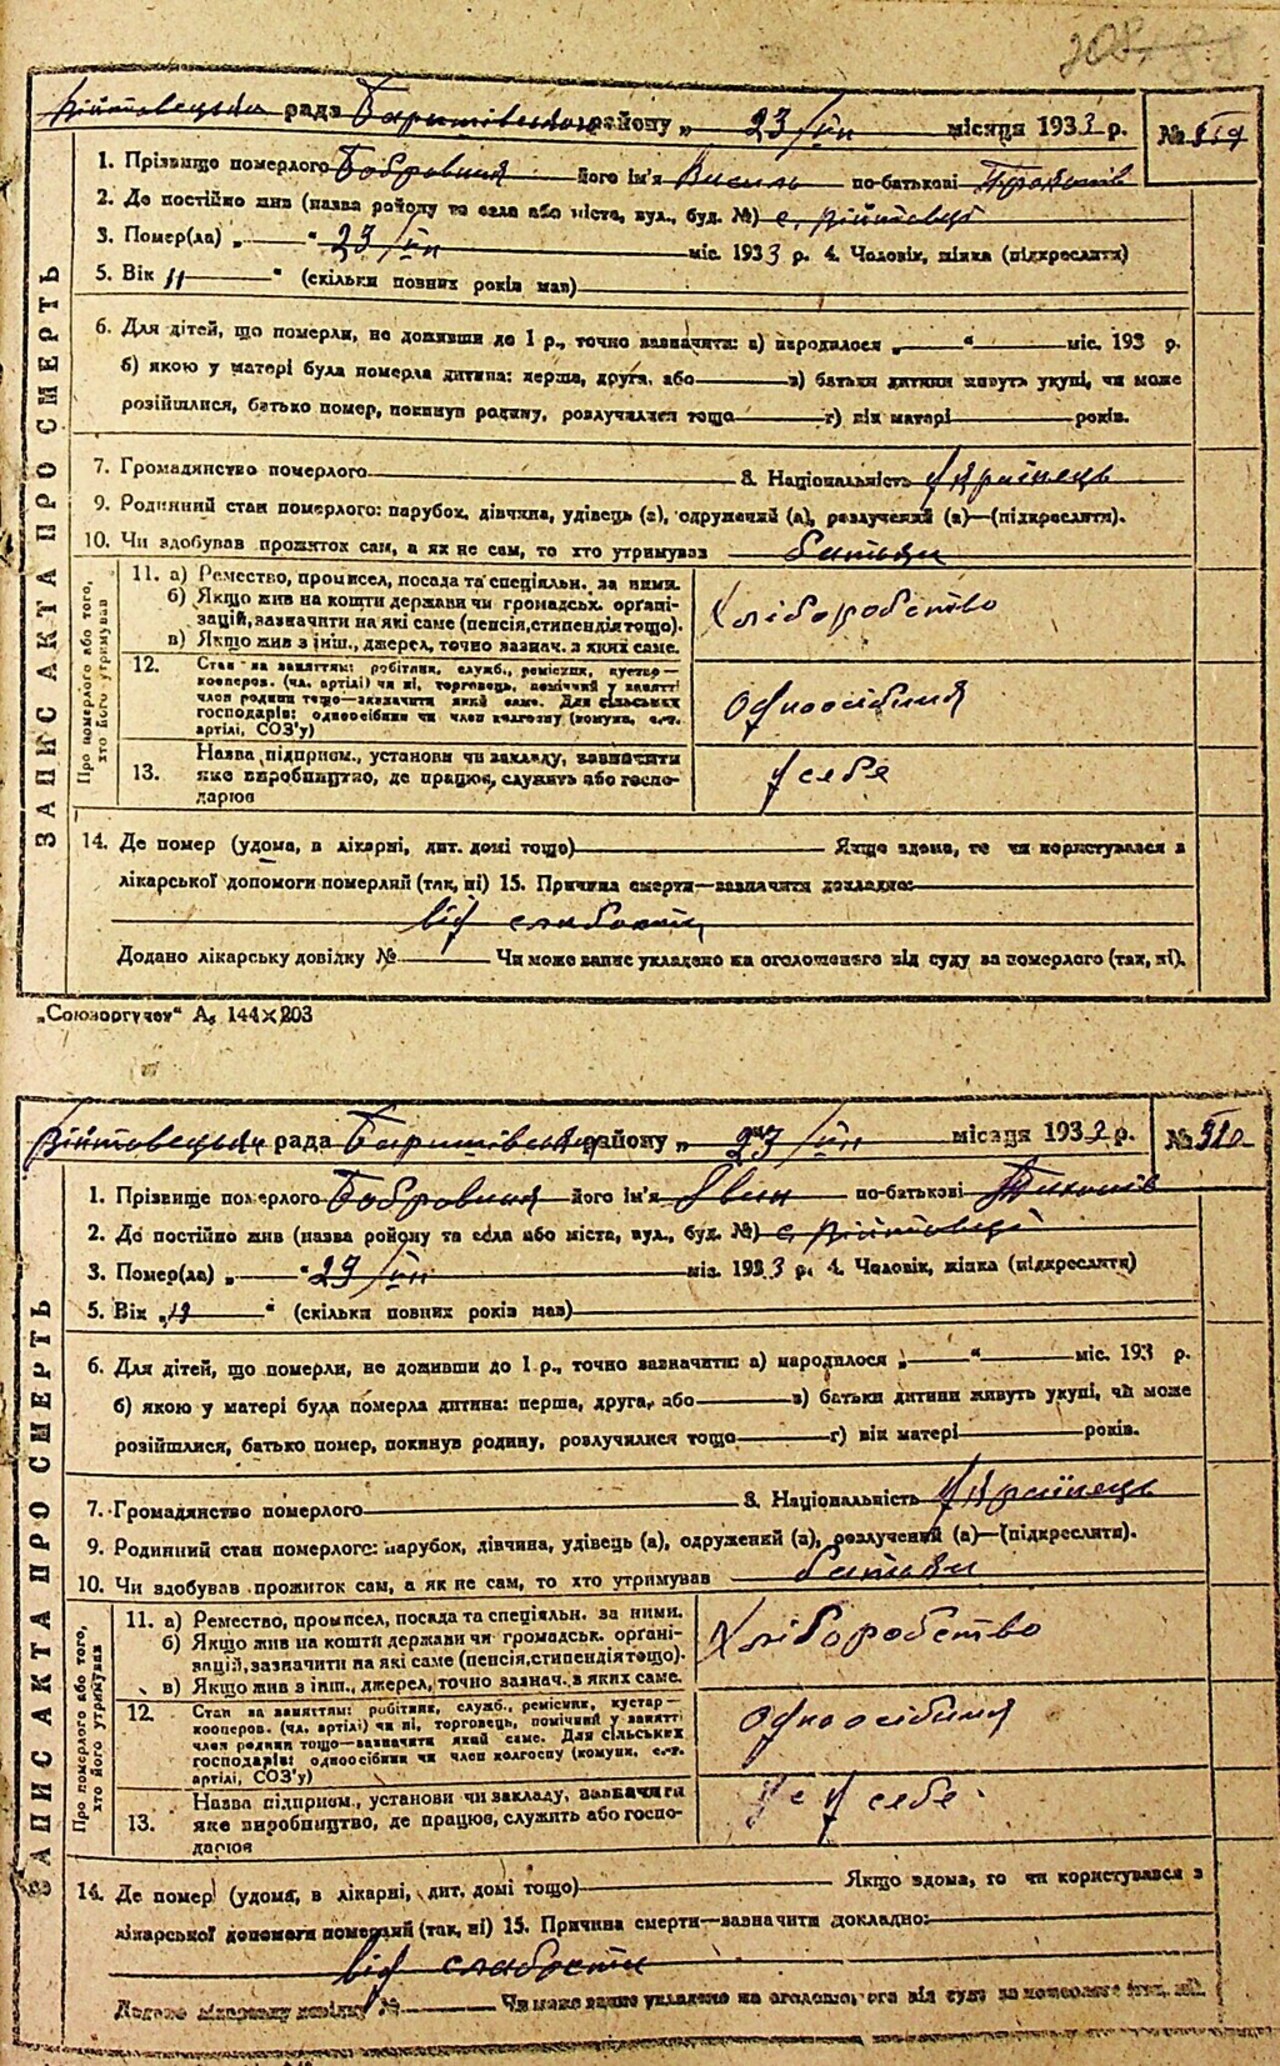 208
Війтовецька рада Баришівськ району „ 23/VII місяця 1933 р. №
1. Прізвище померлого Бобровний його ім'я Василь по-батькові
2. Де постійно жив (назва району та села або міста, вул., буд. №) с. Війтовці
3. Помер(ла) „ “ 23/VII міс. 1933 р. 4. Чоловік, жінка (підкреслити)
5. Вік 11 “ (скільки повних років мав)
6. Для дітей, що померли, не доживши до 1 р., точно зазначити: а) народилося „ “ міс. 193 р.
б) якою у матері була померла дитина: перша, друга, або в) батьки дитини живуть укупі, чи може
розійшлися, батько помер, покинув родину, розлучилися тощо г) вік матері років.
7. Громадянство померлого 8. Національність Українець
9. Родинний стан померлого: парубок, дівчина, удівець (а), одружений (а), розлучений (а)—(підкреслити).
10. Чи здобував прожиток сам, а як не сам, то хто утримував батьки
ЗАПИС АКТА ПРО СМЕРТЬ
Про померлого або того, хто його утримував
11. а) Ремество, промисел, посада та спеціяльн. за ними.
б) Якщо жив на кошти держави чи громадськ. орґані-
зацій, зазначити на які саме (пенсія, стипендія тощо).
в) Якщо жив з інш., джерел, точно зазнач. з яких саме.
Хліборобство
12. Стан за заняттям: робітник, служб., ремісник, кустар—
кооперов. (чл. артілі) чи ні, торговець, помічний у занятті
член родини тощо—зазначити який саме. Для сільських
господарів: одноосібник чи член колгоспу (комуни, с.-г.
артілі, СОЗ'у)
Одноосібник
13. Назва підприєм., установи чи закладу, зазначити
яке виробництво, де працює, служить або госпо-
дарює
У себе
14. Де помер (удома, в лікарні, дит. домі тощо) Якщо вдома, то чи користувався з
лікарської допомоги померлий (так, ні) 15. Причина смерти—зазначити докладно:
від слабости
Додано лікарську довідку № Чи може запис укладено на оголошенего від суду за померлого (так, ні).
„Союзоргучет“ А₅ 144×203
Війтовецька рада Баришівськ району „ /VII місяця 193 р. №
1. Прізвище померлого Бобровний його ім'я Іван по-батькові
2. Де постійно жив (назва району та села або міста, вул., буд. №) с. Війтовці
3. Помер(ла) „ “ 29/VII міс. 1933 р. 4. Чоловік, жінка (підкреслити)
5. Вік „ “ (скільки повних років мав)
6. Для дітей, що померли, не доживши до 1 р., точно зазначити: а) народилося „ “ міс. 193 р.
б) якою у матері була померла дитина: перша, друга, або в) батьки дитини живуть укупі, чи може
розійшлися, батько помер, покинув родину, розлучилися тощо г) вік матері років.
7. Громадянство померлого 8. Національність Українець
9. Родинний стан померлого: парубок, дівчина, удівець (а), одружений (а), розлучений (а)—(підкреслити).
10. Чи здобував прожиток сам, а як не сам, то хто утримував батьки
ЗАПИС АКТА ПРО СМЕРТЬ
Про померлого або того, хто його утримував
11. а) Ремество, промисел, посада та спеціяльн. за ними.
б) Якщо жив на кошти держави чи громадськ. орґані-
зацій, зазначити на які саме (пенсія, стипендія тощо).
в) Якщо жив з інш., джерел, точно зазнач. з яких саме.
Хліборобство
12. Стан за заняттям: робітник, служб., ремісник, кустар—
кооперов. (чл. артілі) чи ні, торговець, помічний у занятті
член родини тощо—зазначити який саме. Для сільських
господарів: одноосібник чи член колгоспу (комуни, с.-г.
артілі, СОЗ'у)
Одноосібник
13. Назва підприєм., установи чи закладу, зазначити
яке виробництво, де працює, служить або госпо-
дарює
у себе
14. Де помер (удома, в лікарні, дит. домі тощо) Якщо вдома, то чи користувався з
лікарської допомоги померлий (так, ні) 15. Причина смерти—зазначити докладно:
від слабости
Додано лікарську довідку № Чи може запис укладено на оголошеного від суду за померлого (так, ні).